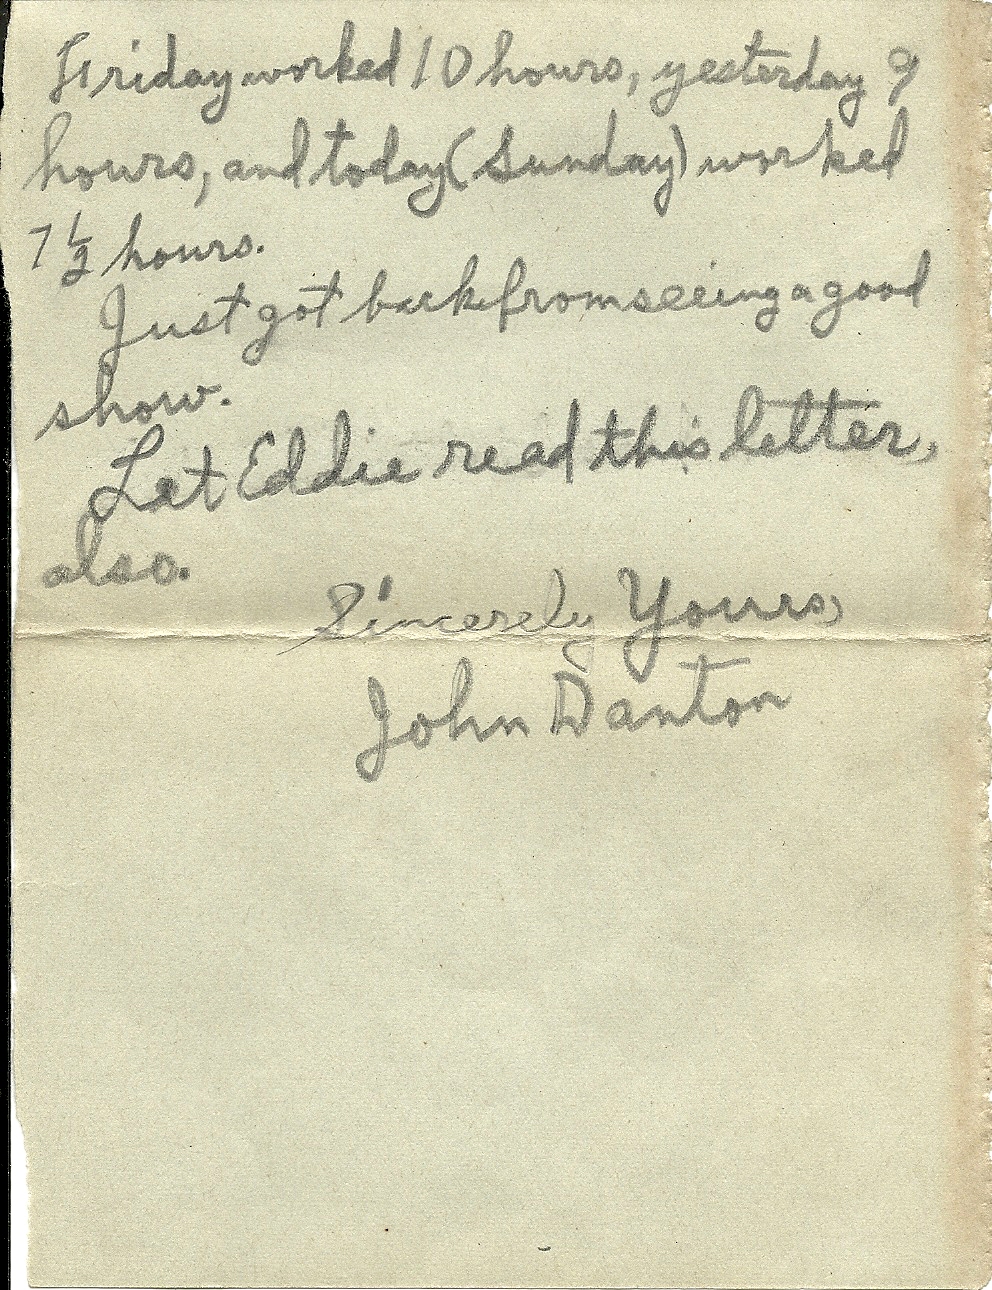 Friday worked 10 hours, yesterday 9
hours, and today (Sunday) worked
7 1/2 hours.
Just got back from seeing a good
show.
Let Eddie read this letter,
also.
Sincerely Yours,
John Danton